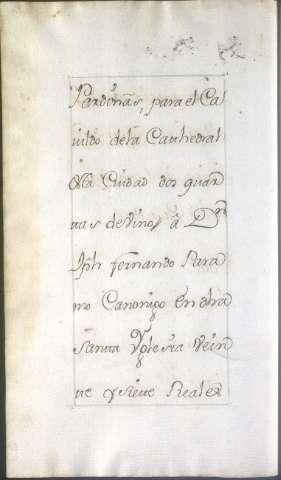 Pardinas, para el Ca
vildo dela Cathedral
Dsta Ciudad dos quar
tas de vino, a Dn
Jph fernando Para
mo Canonigo En dha
Santa Yglesia Vein
te y siete Reales